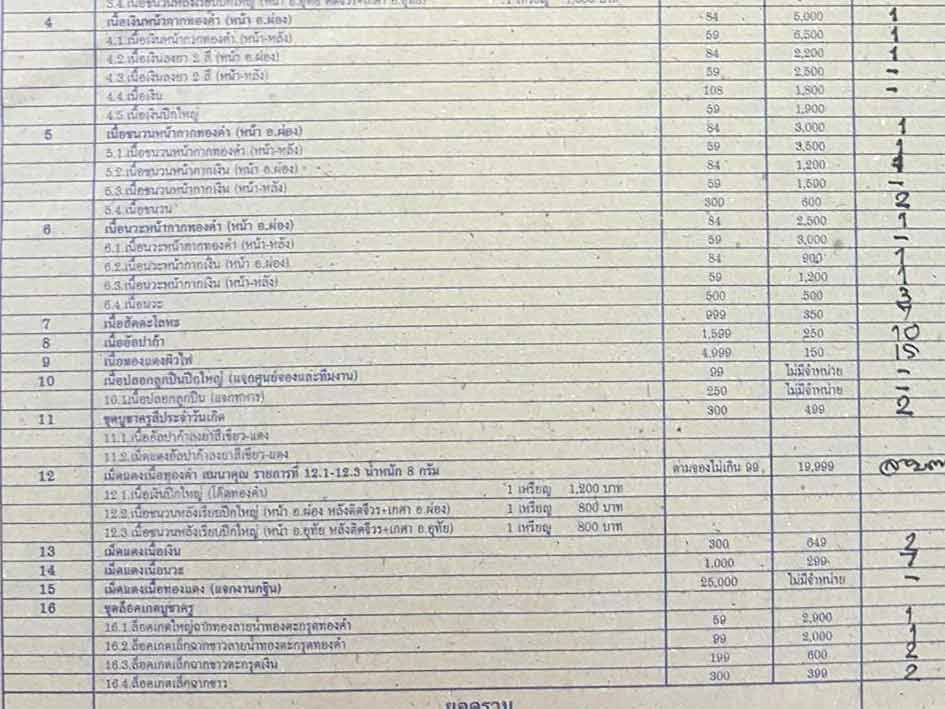 5.4.เนื้อชนวนหลังเรียบปีกใหญ่ 1 เหรียญ บาท
4 เนื้อเงินหน้ากากทองคำ (หน้า อ.ผ่อง) 84 5,000 1
4.1.เนื้อเงินหน้ากากทองคำ (หน้า-หลัง) 59 6,500 1
4.2.เนื้อเงินลงยา 2 สี (หน้า อ.ผ่อง) 84 2,200 1
4.3.เนื้อเงินลงยา 2 สี (หน้า-หลัง) 59 2,500 -
4.4.เนื้อเงิน 108 1,800 -
4.5.เนื้อเงินปีกใหญ่ 59 1,900
5 เนื้อชนวนหน้ากากทองคำ (หน้า อ.ผ่อง) 84 3,000 1
5.1.เนื้อชนวนหน้ากากทองคำ (หน้า-หลัง) 59 3,500 1
5.2.เนื้อชนวนหน้ากากเงิน (หน้า อ.ผ่อง) 84 1,200
5.3.เนื้อชนวนหน้ากากเงิน (หน้า-หลัง) 59 1,500 -
5.4.เนื้อชนวน 300 600 2
6 เนื้อนวะหน้ากากทองคำ (หน้า อ.ผ่อง) 84 2,500 1
6.1.เนื้อนวะหน้ากากทองคำ (หน้า-หลัง) 59 3,000 -
6.2.เนื้อนวะหน้ากากเงิน (หน้า อ.ผ่อง) 84 900 1
6.3.เนื้อนวะหน้ากากเงิน (หน้า-หลัง) 59 1,200 1
6.4.เนื้อนวะ 500 500 3
7 เนื้อสัตตะโลหะ 999 350 7
8 เนื้ออัลปาก้า 1,599 250 10
9 เนื้อทองแดงผิวไฟ 4,999 150 15
10 เนื้อปลอกลูกปืนปีกใหญ่ (แจกศูนย์จองและทีมงาน) 99 ไม่มีจำหน่าย -
10.1.เนื้อปลอกลูกปืน (แจกทหาร) 250 ไม่มีจำหน่าย -
11 ชุดบูชาครูสีประจำวันเกิด 300 499 2
11.1.เนื้ออัลปาก้าลงยาสีเขียว-แดง
11.2.เม็ดแตงอัลปาก้าลงยาสีเขียว-แดง
12 เม็ดแตงเนื้อทองคำ สมนาคุณ รายการที่ 12.1-12.3 น้ำหนัก 8 กรัม ตามจองไม่เกิน 99 19,999
12.1.เนื้อเงินปีกใหญ่ (โค๊ดทองคำ) 1 เหรียญ 1,200 บาท
12.2.เนื้อชนวนหลังเรียบปีกใหญ่ (หน้า อ.ผ่อง หลังติดจีวร+เกศา อ.ผ่อง) 1 เหรียญ 800 บาท
12.3.เนื้อชนวนหลังเรียบปีกใหญ่ (หน้า อ.อุทัย หลังติดจีวร+เกศา อ.อุทัย) 1 เหรียญ 800 บาท
13 เม็ดแตงเนื้อเงิน 300 649 2
14 เม็ดแตงเนื้อนวะ 1,000 299 7
15 เม็ดแตงเนื้อทองแดง (แจกงานกฐิน) 25,000 ไม่มีจำหน่าย -
16 ชุดล็อคเกตบูชาครู
16.1.ล็อคเกตใหญ่ฉากทองลายน้ำทองตะกรุดทองคำ 59 2,900 1
16.2.ล็อคเกตเล็กฉากขาวลายน้ำทองตะกรุดทองคำ 99 2,000 1
16.3.ล็อคเกตเล็กฉากขาวตะกรุดเงิน 199 600 2
16.4.ล็อคเกตเล็กฉากขาว 300 399 2
ยอดรวม